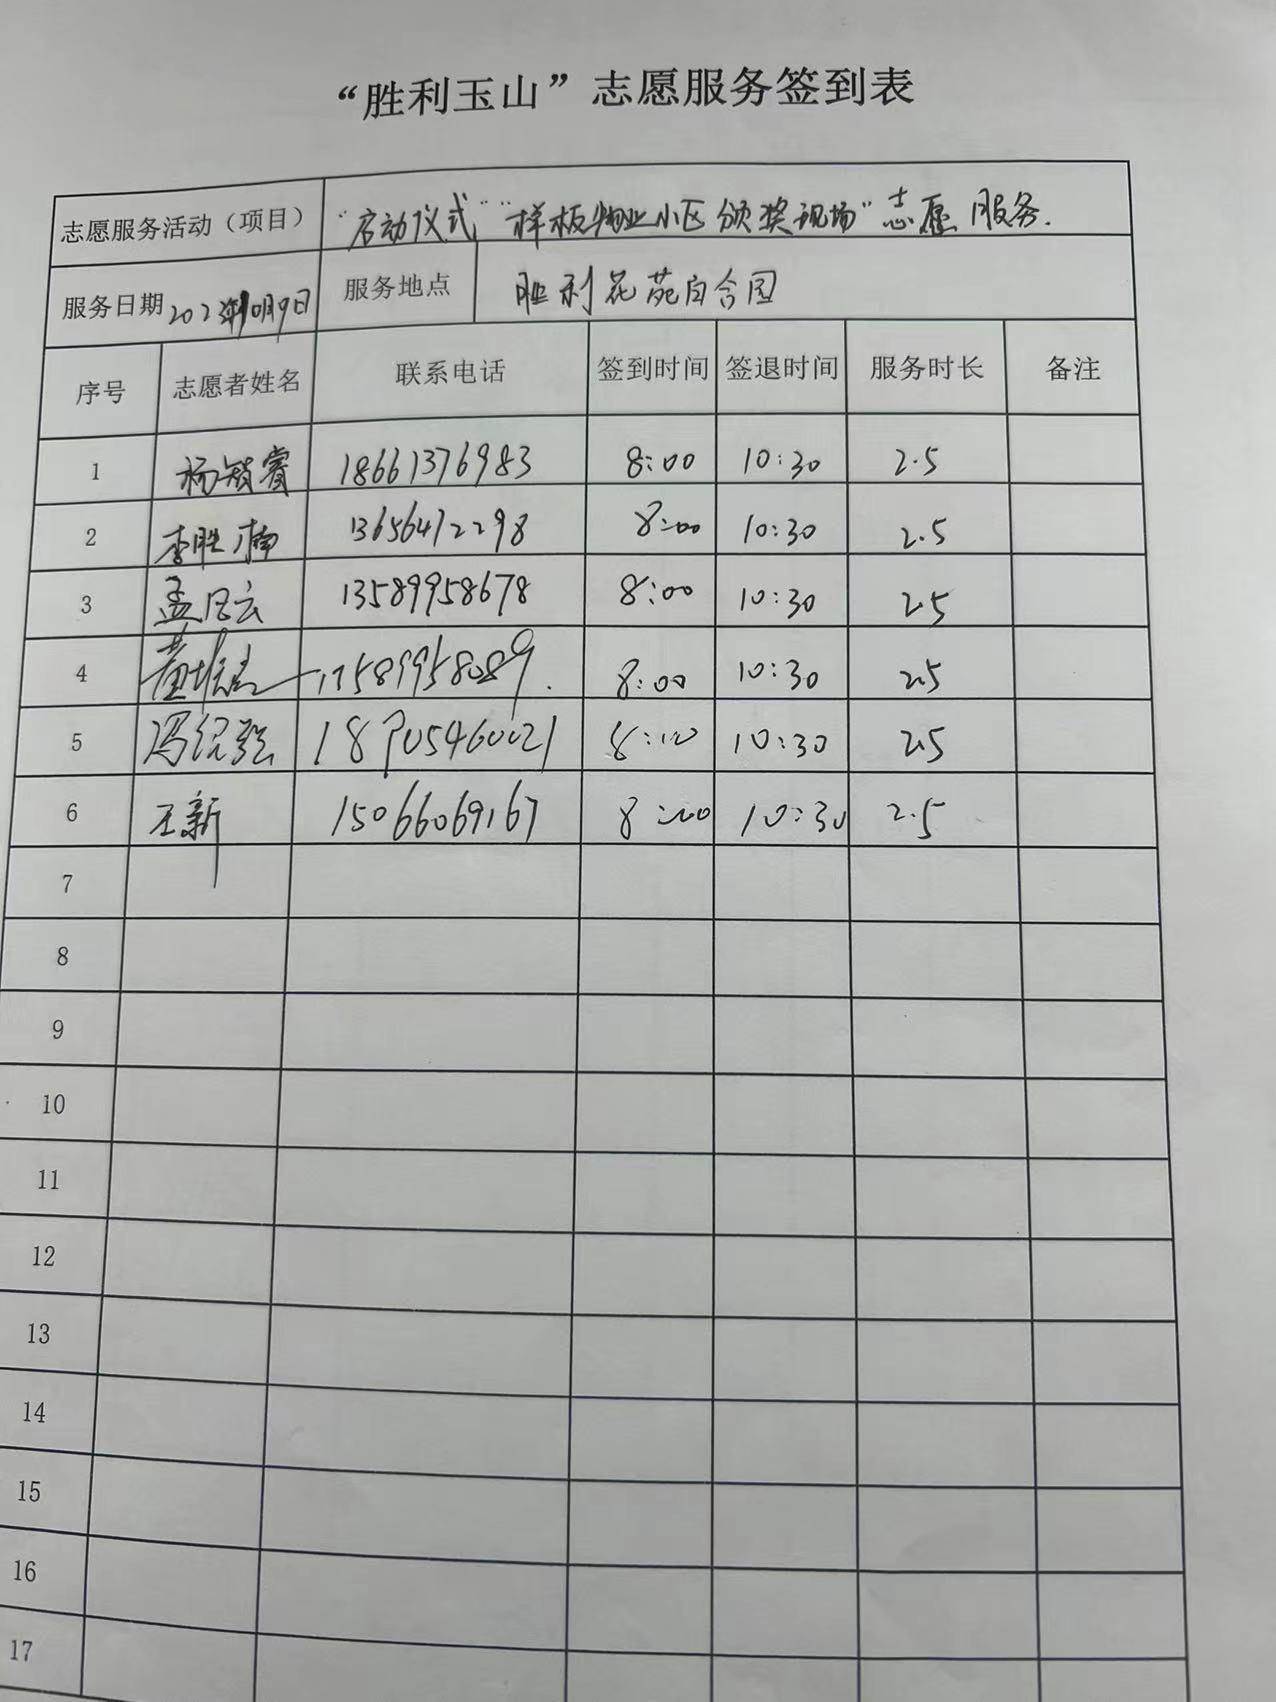 “胜利玉山”志愿服务签到表
志愿服务活动（项目） “启动仪式”“样板物业小区颁奖现场”志愿服务.
服务日期 10月9日 服务地点 胜利花苑百合园
序号 志愿者姓名 联系电话 签到时间 签退时间 服务时长 备注
1 杨智睿 18661376983 8:00 10:30 2.5
2 李胜楠 13656472298 8:00 10:30 2.5
3 孟凡云 13589958678 8:00 10:30 2.5
4 8:00 10:30 2.5
5 8:00 10:30 2.5
6 王新 15066069167 8:00 10:30 2.5
7
8
9
10
11
12
13
14
15
16
17